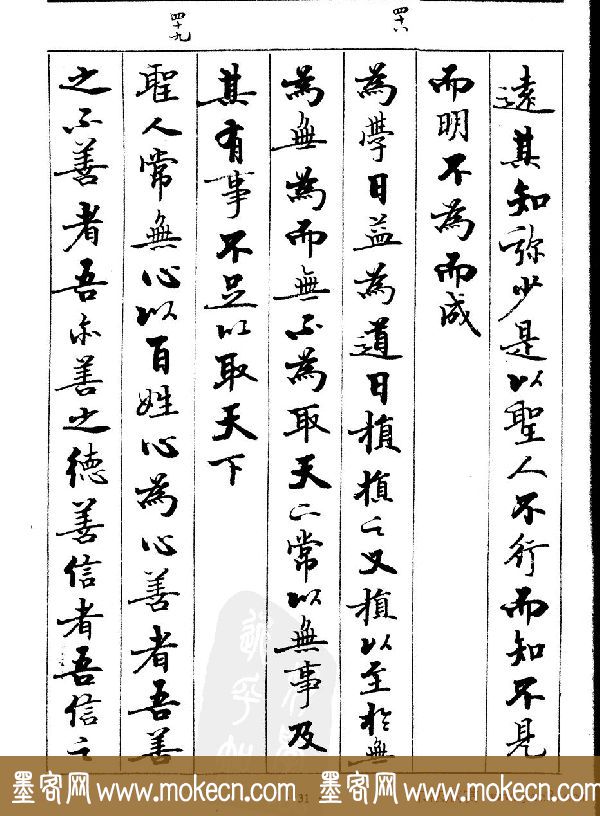 四十八
四十九
遠其知彌少是以聖人不行而知不見
而明不為而成
為學日益為道日損損之又損以至於無
為無為而無不為取天下常以無事及
其有事不足以取天下
聖人常無心以百姓心為心善者吾善
之不善者吾亦善之德善信者吾信之
墨客网_www.mokecn.com 墨客网_www.mokecn.com
31